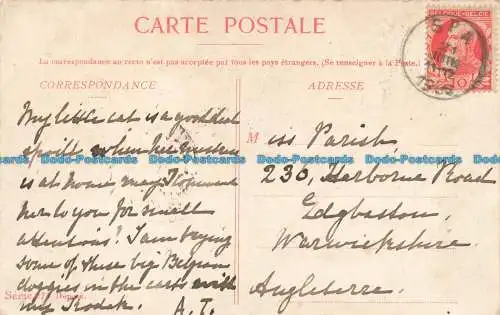 CARTE POSTALE
La correspondance au recto n'est pas acceptée par tous les pays étrangers. (Se renseigner à la Poste.)
CORRESPONDANCE
ADRESSE
My little cat is a good deal
spoilt when her mistress
is at home, may I commend
her to you for small
attentions? I am trying
some of these big Belgian
doggies in the carts with
my Kodak. A. T.
Miss Parish,
230, Harborne Road
Edgbaston,
Warwickshire.
Angleterre.
BELGIQUE-BELGIË
10
SPA
Postcards Data-Postcards Data-Postcards Data-Postcards